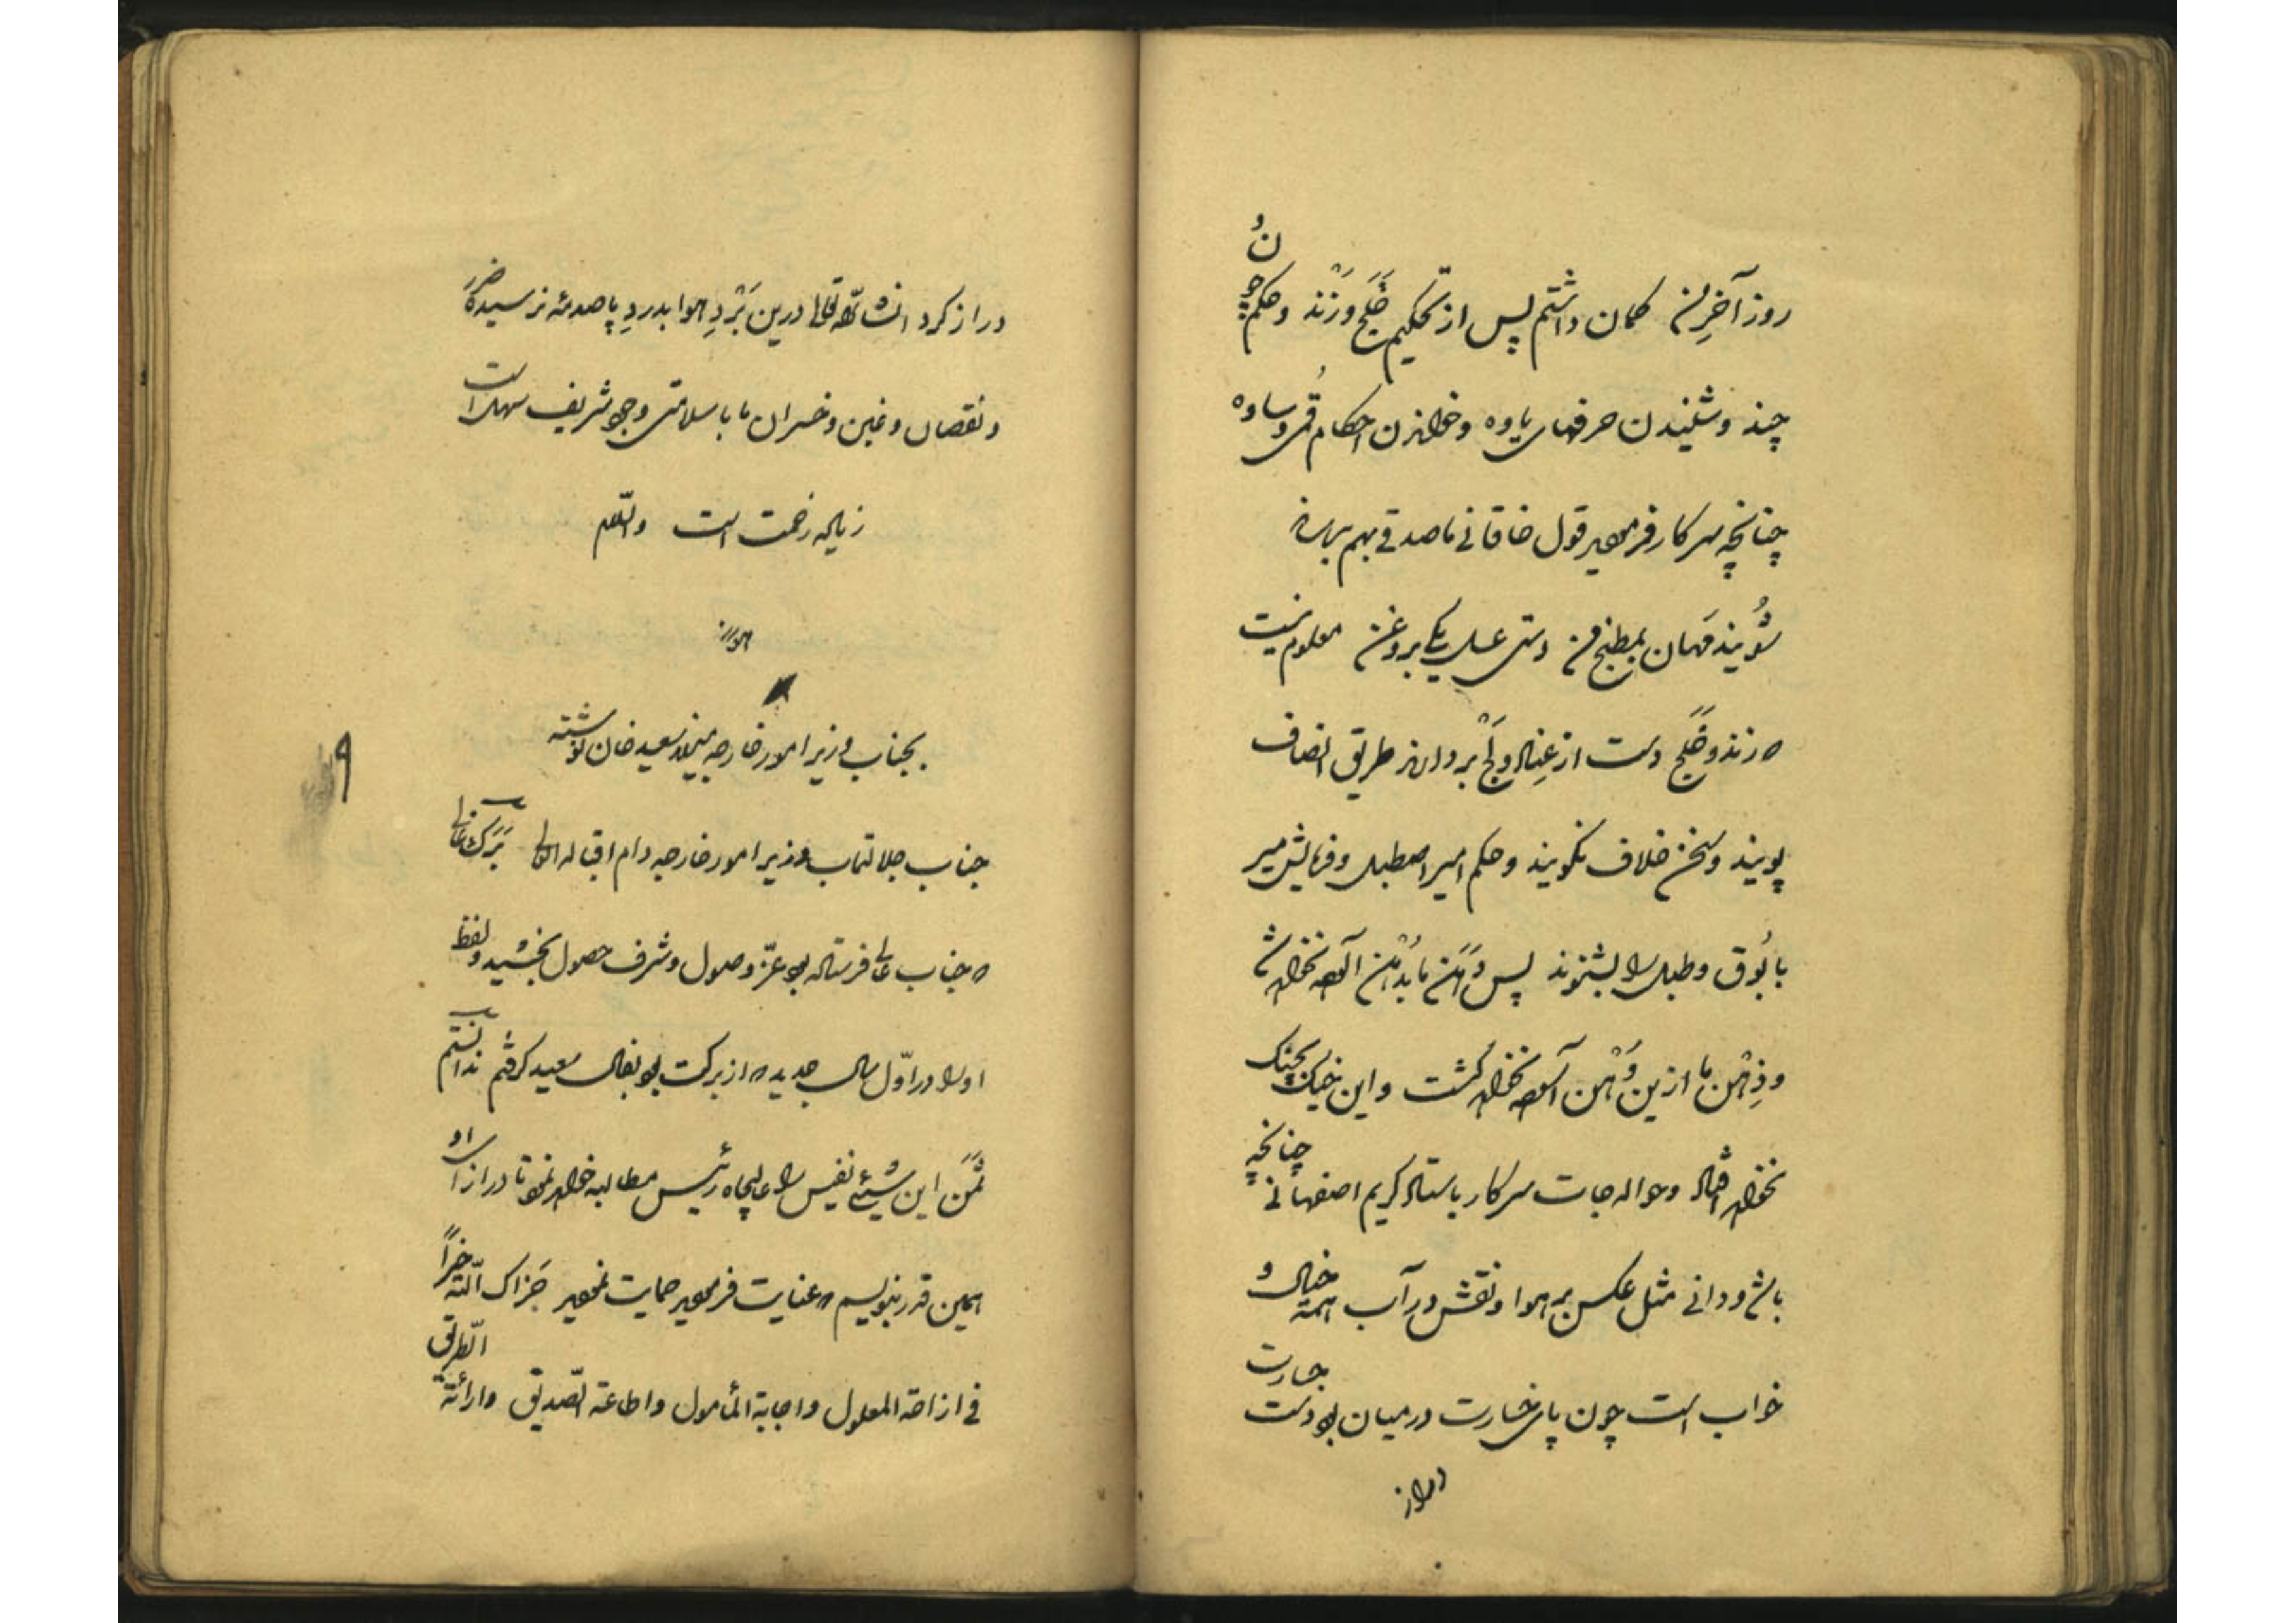 روز آخرین کمان داشتم پس از تحکیم خلج و زند و حکم چون
چند و شنیدن حرفهای یاوه و خواندن احکام قم و ساوه
چنانچه سرکار فرمودید قول خاقانی ما صدقی بهم برساند
شویند مهمان بمطبخ من دستی عسل یکی بروغن معلوم نیست
که زند و خلج دست از عناد و لج بردارند طریق انصاف
پویند و سخن خلاف نگویند و حکم امیر اصطبل و فرمایش میر
با بوق و طبل را بشنوند پس دَمَن ما بدُهن آلوده نخواهد شد
و ذِهْن ما ازین وَهْن آسوده نخواهد گشت و این خیک بچنگ
نخواهد افتاد و حواله جات سرکار باستاد کریم اصفهانی چنانچه
باشد و دانی مثل عکس بر هوا و نقش در آب همه خیال و
خواب است چون پای خسارت در میان بود دست جسارت
دراز
دراز کرد انشاءالله تعالی درین بَرْدِ هوا بدردِ پا صدمهٔ نرسیده ضرر
و نقصان و غبن و خسران ما با سلامتی وجود شریف سهل است
زیاده زحمت است والسلام
بجناب وزیر امور خارجه میرزا سعید خان نوشته
جناب جلالتمآب وزیر امور خارجه دام اقباله العالی بَرَک عالی
که جناب عالی فرستاده بود عزّ وصول و شرف حصول بخشید و لفظ
او را در اوّل سال جدید که از برکت بود بفال سعید گرفتم ندانستم
ثَمَن این شیئی نفیس را عالیجاه رئیس مطالبه خواهد نمود تا در ازای او
همین قدر بنویسم که عنایت فرمودید حمایت نمودید جَزاک الله خیراً
فی ازاحة المعلول و اجابة المأمول و اطاعة الصّدیق و ارائة الطریق
۹